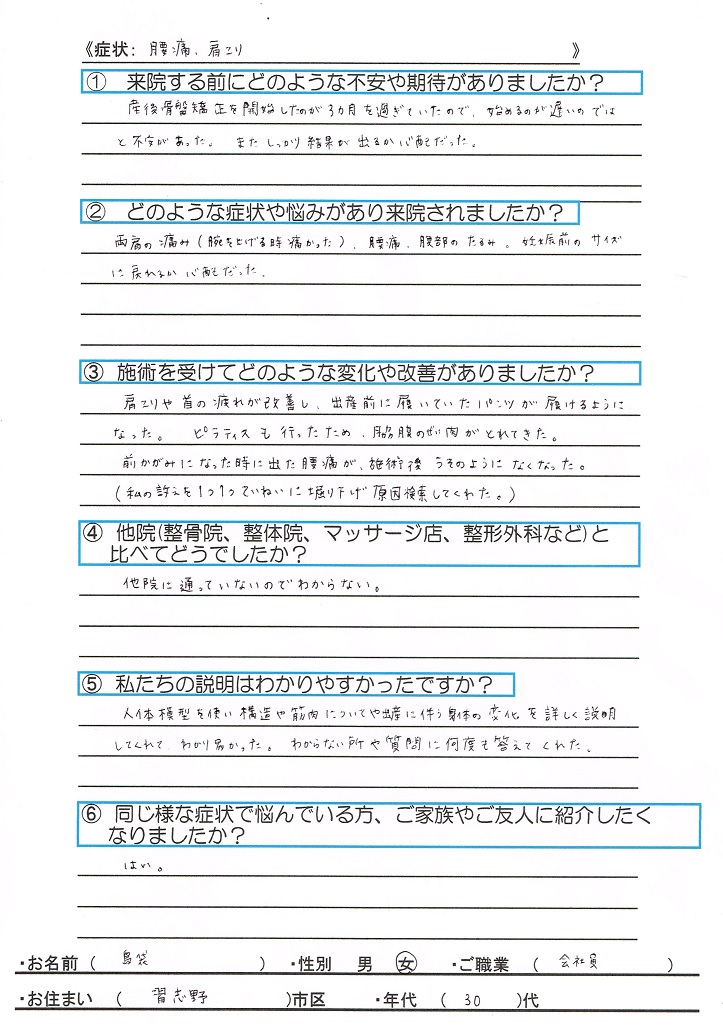 《症状: 腰痛、肩こり 》
① 来院する前にどのような不安や期待がありましたか？
産後骨盤矯正を開始したのが3カ月を過ぎていたので、始めるのが遅いのでは
と不安があった。 また しっかり結果が出るか心配だった。
② どのような症状や悩みがあり来院されましたか？
両肩の痛み(腕を上げる時痛かった)、腰痛、腹部のたるみ。妊娠前のサイズ
に戻れるか心配だった。
③ 施術を受けてどのような変化や改善がありましたか？
肩こりや首の疲れが改善し、出産前に履いていたパンツが履けるように
なった。 ピラティスも行ったため、脇腹のぜい肉がとれてきた。
前かがみになった時に出た腰痛が、施術後うそのようになくなった。
(私の訴えを1つ1つていねいに掘り下げ原因検索してくれた。)
④ 他院(整骨院、整体院、マッサージ店、整形外科など)と
比べてどうでしたか？
他院に通っていないのでわからない。
⑤ 私たちの説明はわかりやすかったですか？
人体模型を使い構造や筋肉についてや出産に伴う身体の変化を詳しく説明
してくれて、わかり易かった。 わからない所や質問に何度も答えてくれた。
⑥ 同じ様な症状で悩んでいる方、ご家族やご友人に紹介したく
なりましたか？
はい。
・お名前 ( 島袋 ) ・性別 男 女 ・ご職業 ( 会社員 )
・お住まい ( 習志野 )市区 ・年代 ( 30 )代